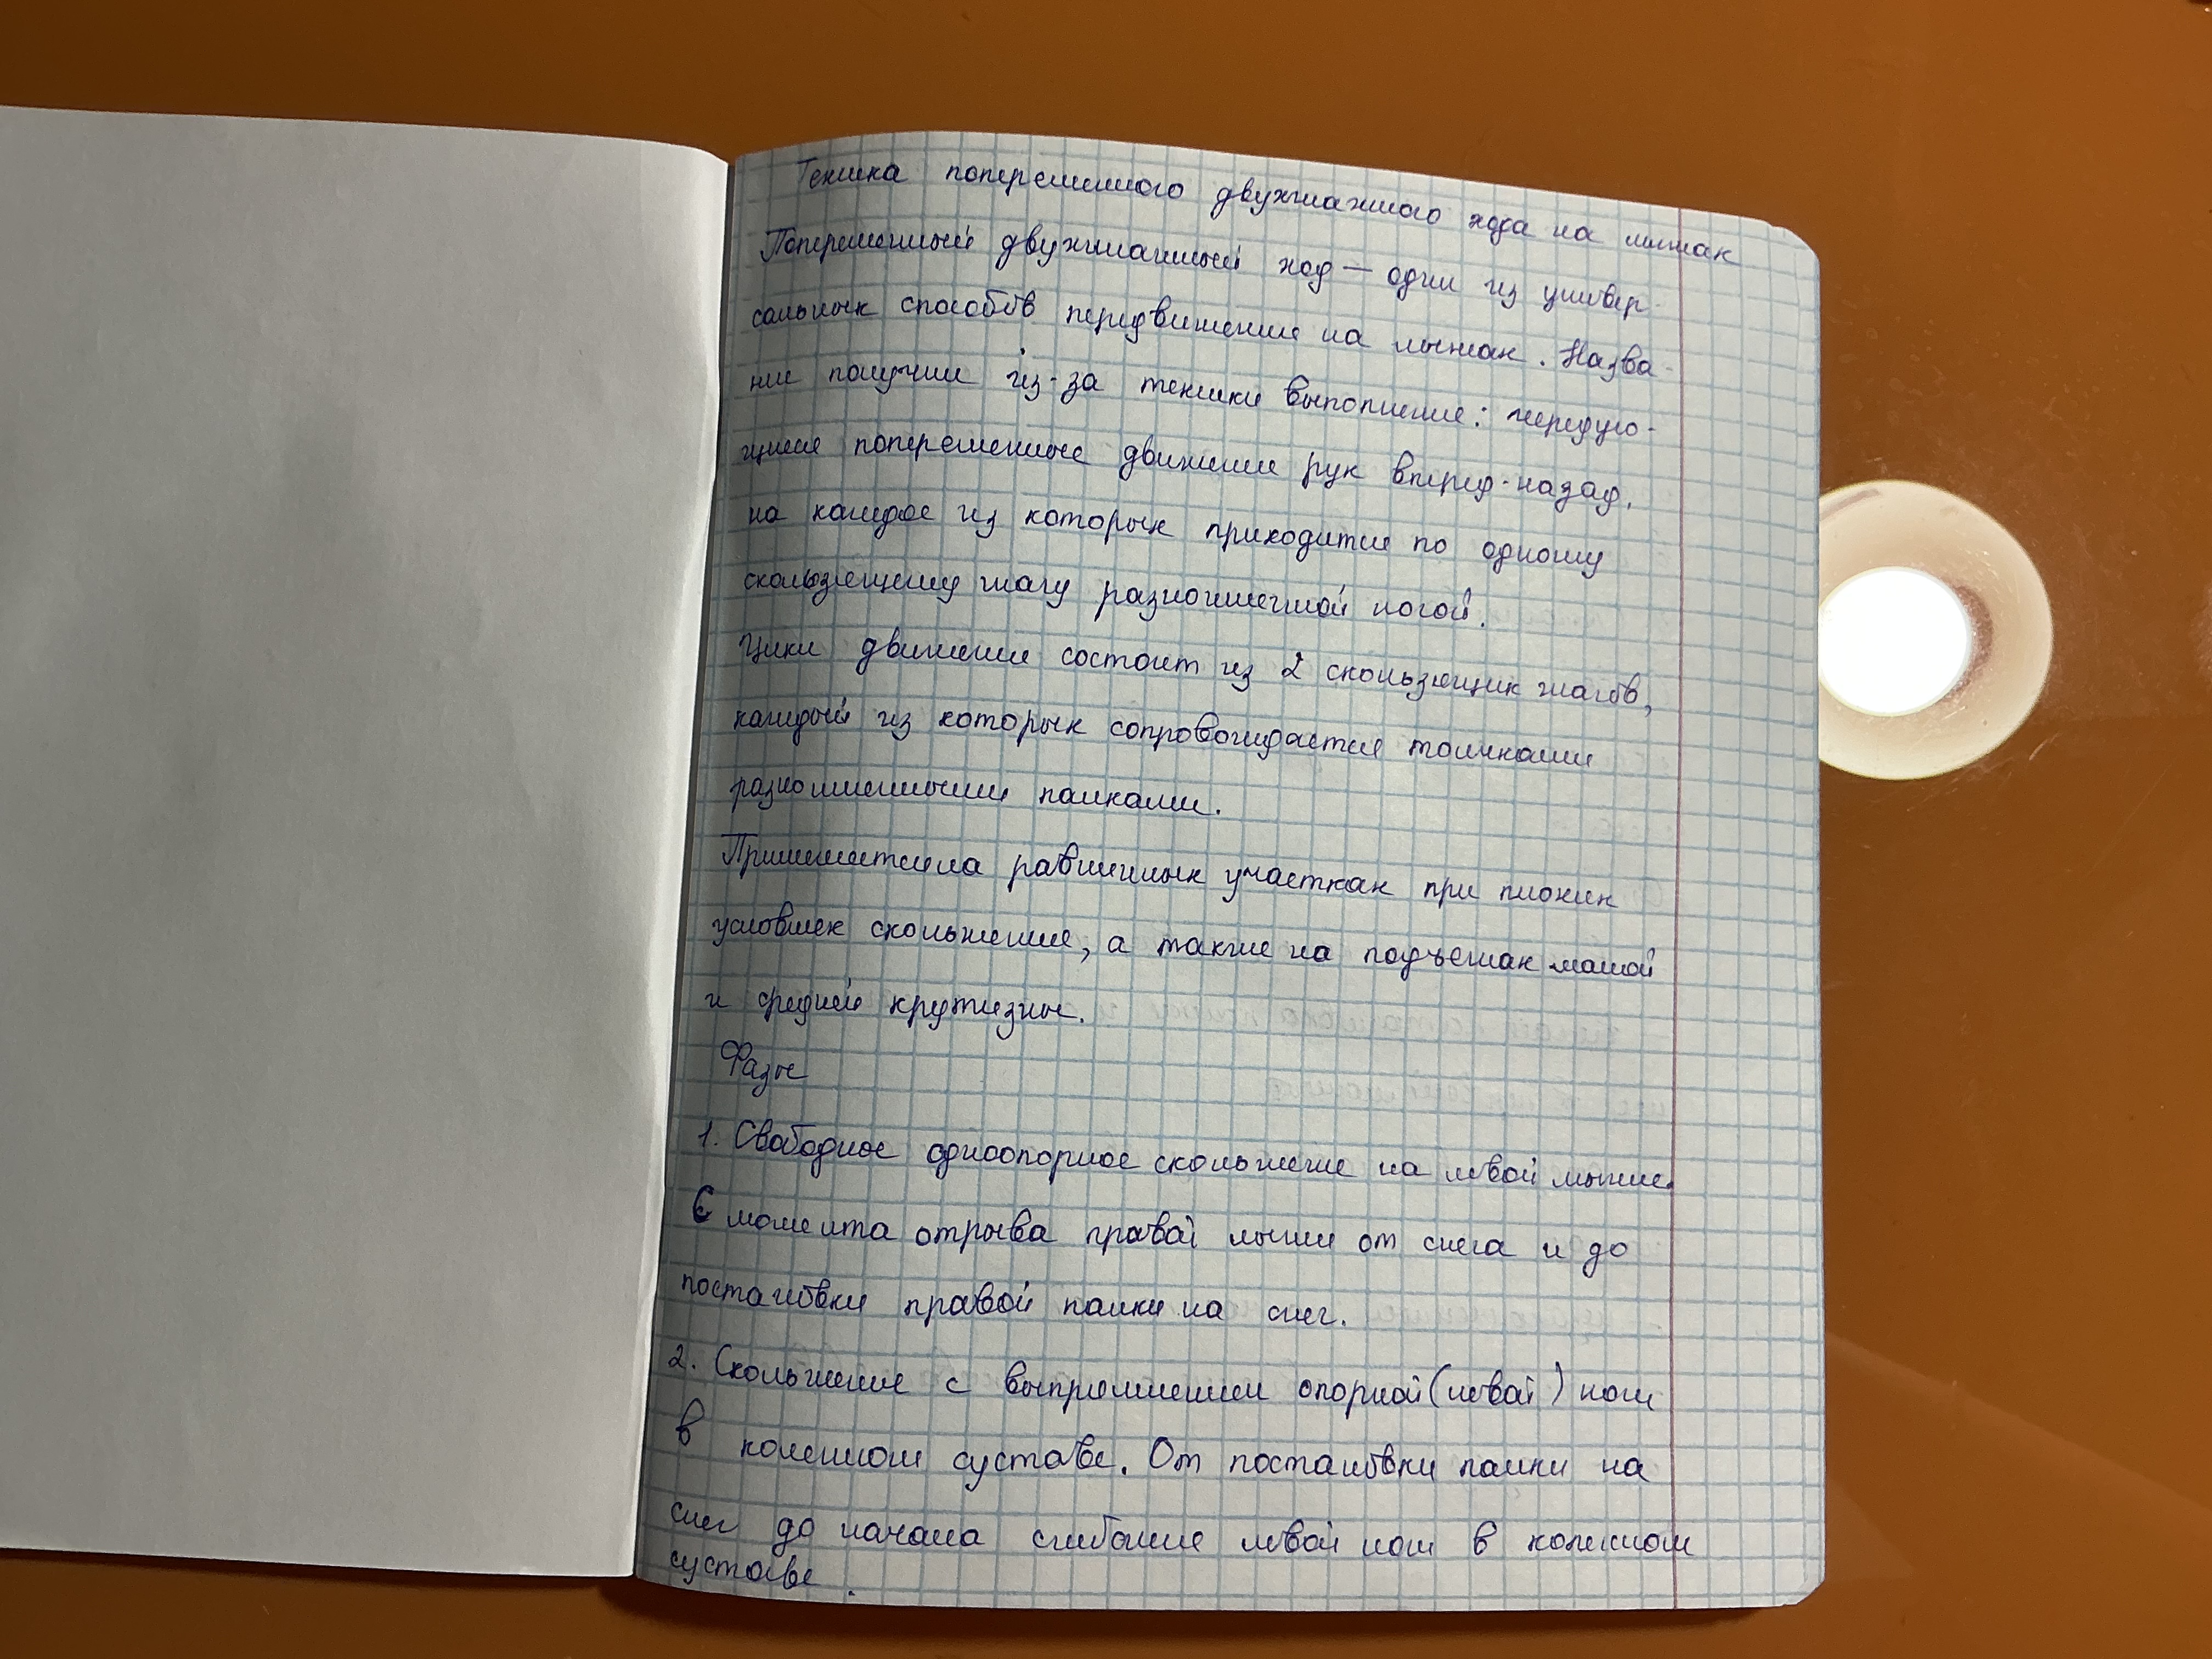 Техника попеременного двухшажного хода на лыжах
Попеременный двухшажный ход — один из универ-
сальных способов передвижения на лыжах. Назва-
ние получил из-за техники выполнения: чередую-
щиеся попеременные движения рук вперед-назад,
на каждое из которых приходится по одному
скользящему шагу разноименной ногой.
Цикл движения состоит из 2 скользящих шагов,
каждый из которых сопровождается толчками
разноименными палками.
Применяется на равнинных участках при плохих
условиях скольжения, а также на подъемах малой
и средней крутизны.
Фазы
1. Свободное одноопорное скольжение на левой лыже.
С момента отрыва правой лыжи от снега и до
постановки правой палки на снег.
2. Скольжение с выпрямлением опорной (левой) ноги
в коленном суставе. От постановки палки на
снег до начала сгибания левой ноги в коленном
суставе.